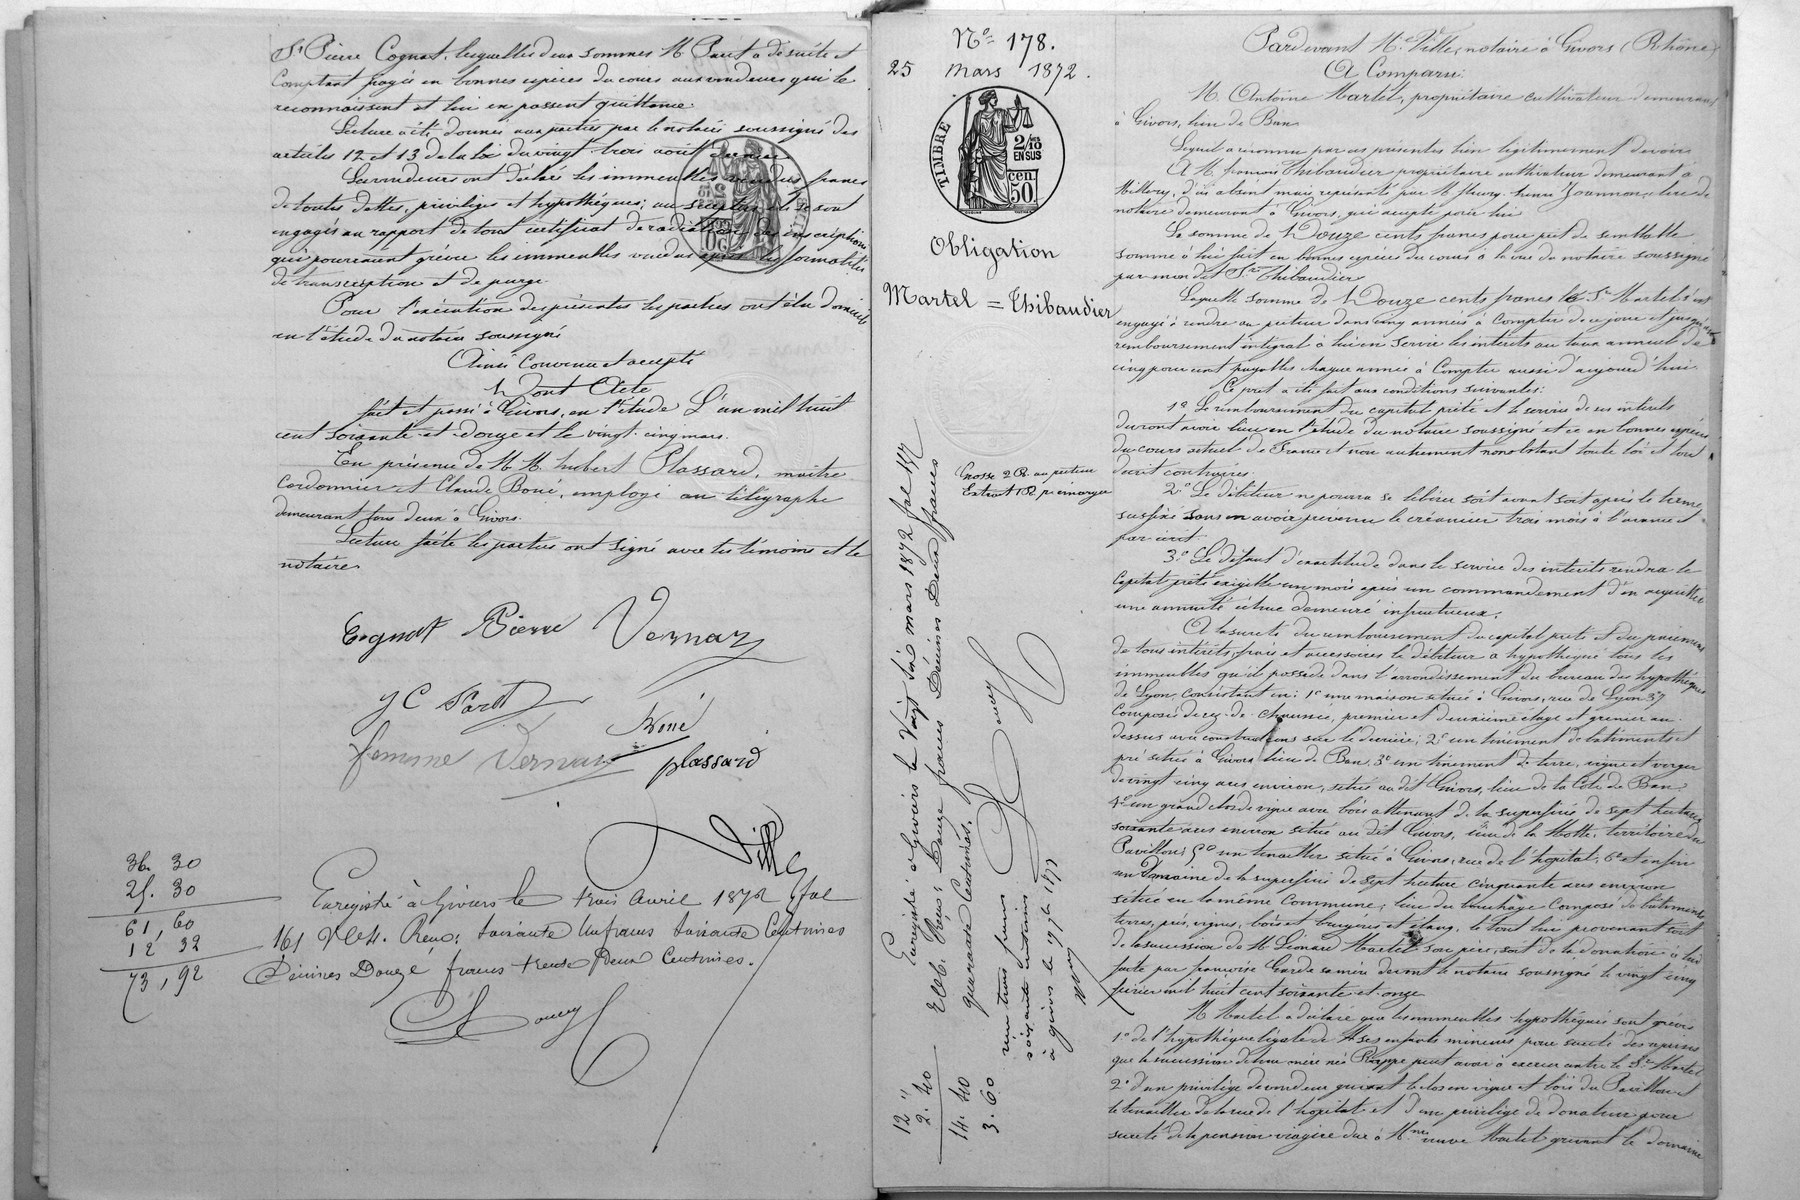 Sr Pierre Cognat, lesquelles deux sommes M. Paret a de suite et
Comptant payés en bonnes espèces du cours aux vendeurs qui le
reconnaissent et lui en passent quittance.
Lecture a été donnée aux parties par le notaire soussigné des
articles 12 et 13 de la Loi du vingt trois août dernier
Les vendeurs ont déclaré les immeubles vendus francs
de toutes dettes, privilèges et hypothèques, au surplus ils se sont
engagés au rapport de tout certificat de radiation des inscriptions
qui pourraient grever les immeubles vendus après les formalités
de transcription et de purge.
Pour l'exécution des présentes les parties ont élu domicile
en l'étude du notaire soussigné
Ainsi Convenu et accepté
Dont Acte
fait et passé à Givors, en l'étude L'an mil huit
cent soixante et douze et le vingt cinq mars.
En présence de M.M. hubert Plassard, maître
Cordonnier et Claude Boné, employé au télégraphe
demeurant tous deux à Givors.
Lecture faite les parties ont signé avec les témoins et le
notaire
Cognat Pierre Vernay
JC Paret
Boné
femme Vernay plassard
Ville
36. 30
25. 30
61, 60
12 32
73, 92
Enregistré à Givors le trois Avril 1872 fol
161 Reçu: soixante Un francs soixante Centimes
Décimes Douze francs trente Deux Centimes.
No 178.
25 Mars 1872.
TIMBRE
2/10
EN SUS
cen.
50
Obligation
Martel = Thibaudier
Grosse 2 R. au prêteur
Extrait 1 R
Enregistré à Givors le Vingt Six mars 1872 fol 157
Reçu: Douze francs Décimes Deux francs
quarante Centimes.
reçu trois francs
soixante centimes
à givors le
12 "
2. 40
14. 40
3. 60
Pardevant Me Ville, notaire à Givors (Rhône)
A Comparu:
M. Antoine Martel, propriétaire cultivateur demeurant
à Givors, lieu de Ban
Lequel a reconnu par ces présentes bien légitimement devoir
A M. françois Thibaudier propriétaire cultivateur demeurant à
Millery, d'ici absent mais représenté par M. fleury henri Joannon, clerc de
notaire demeurant à Givors, qui accepte pour lui
La somme de Douze cents francs pour prêt de semblable
somme à lui fait en bonnes espèces du cours à la vue du notaire soussigné
par mon dit Sr Thibaudier
Laquelle somme de Douze cents francs le Sr Martel s'est
engagé à rendre au prêteur dans cinq années à Compter de ce jour et jusqu'au
remboursement intégral à lui en servir les intérêts au taux annuel de
cinq pour cent payables chaque année à Compter aussi d'aujourd'hui.
Ce prêt a été fait aux conditions suivantes:
1o Le remboursement du capital prêté et le service de ses intérêts
devront avoir lieu en l'étude du notaire soussigné et ce en bonnes espèces
du cours actuel de France et non autrement nonobstant toute loi et tout
décrit contraires.
2o Le débiteur ne pourra se libérer soit avant soit après le terme
susfixé sans en avoir prévenu le créancier trois mois à l'avance et
par écrit.
3o Le défaut d'exactitude dans le service des intérêts rendra le
Capital prêté exigible un mois après un commandement d'en acquitter
une annuité échue demeuré infructueux.
A la sureté du remboursement du capital prêté et du paiement
de tous intérêts, frais et accessoires le débiteur a hypothéqué tous les
immeubles qu'il possède dans l'arrondissement du bureau des hypothèques
de Lyon, Consistant en: 1o une maison située à Givors, rue de Lyon 37
Composée de rez-de-chaussée, premier et deuxième étage et grenier au
dessus avec constructions sur le derrière; 2o un tènement de bâtiments et
pré situés à Givors lieu de Ban, 3o un tènement de terre, vigne et verger
de vingt cinq ares environ, situé au dit Givors, lieu de la Côte de Ban.
4o un grand clos de vigne avec bois attenant de la superficie de sept hectares
soixante ares environ situé au dit Givors, lieu de la Motte, territoire du
Pavillon; 5o un tènailler situé à Givors, rue de l'hôpital; 6o et enfin
un Domaine de la superficie de sept hectare cinquante ares environ
située en la même Commune; Composé de bâtiments
terres, prés, vignes, bois et bruyères et étang, le tout lui provenant tant
de la succession de M. Léonard Martel son père, soit de la donation à lui
faite par françoise Garde sa mère devant le notaire soussigné le vingt cinq
février mil huit cent soixante et onze
M. Martel a déclaré que les immeubles hypothéqués sont grevés
1o de l'hypothèque légale de ses enfants mineurs pour sureté des reprises
que la succession de leur mère née Rappe peut avoir à exercer contre le Sr Martel
2o d'un privilège de vendeur grevant le clos en vigne et bois du Pavillon et
le tènailler de la rue de l'hôpital et d'un privilège de donateur pour
sureté de la pension viagère due à Mme veuve Martel grevant le domaine